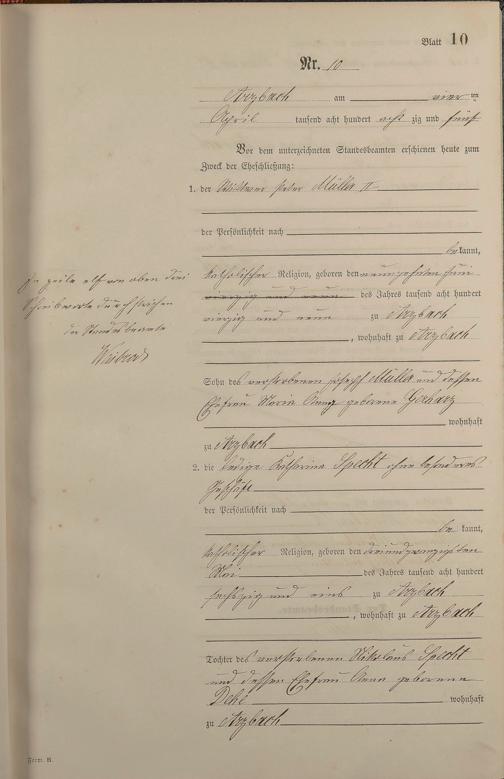 Blatt 10
Nr. 10
Arzbach am vier ten
April tausend acht hundert acht zig und fünf
Vor dem unterzeichneten Standesbeamten erschienen heute zum
Zweck der Eheschließung:
1. der Wittwer Peter Müller II
der Persönlichkeit nach
be kannt,
katholischer Religion, geboren den neunzehnten Juni
vierzig und neun des Jahres tausend acht hundert
vierzig und neun zu Arzbach
, wohnhaft zu Arzbach
Sohn des verstorbenen Joseph Müller und dessen
Ehefrau Maria Anna geborene Gerharz
wohnhaft
zu Arzbach
2. die ledige Katharina Specht ohne besonderes
Geschäft
der Persönlichkeit nach
be kannt,
katholischer Religion, geboren den dreiundzwanzigsten
Mai des Jahres tausend acht hundert
sechszig und eins zu Arzbach
, wohnhaft zu Arzbach
Tochter des verstorbenen Nikolaus Specht
und dessen Ehefrau Anna geborene
Dehé wohnhaft
zu Arzbach
In Zeile elf von oben drei
Schreibworte durchstrichen
der Standesbeamte
Form. B.